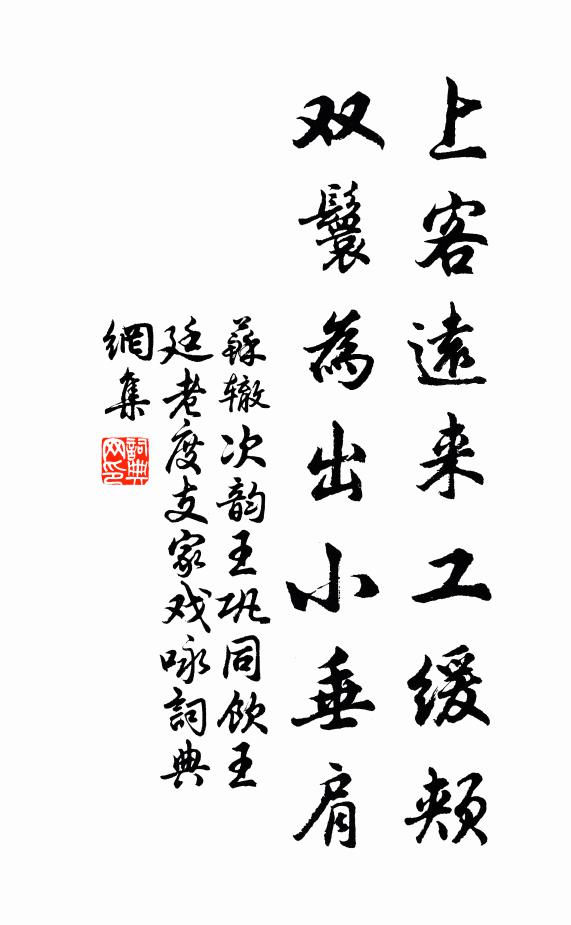 上客遠来工缓颊
双鬟為出小垂肩
蘇辙次韵王巩同饮王
廷老度支家戏咏詞典
網集
詞典网印